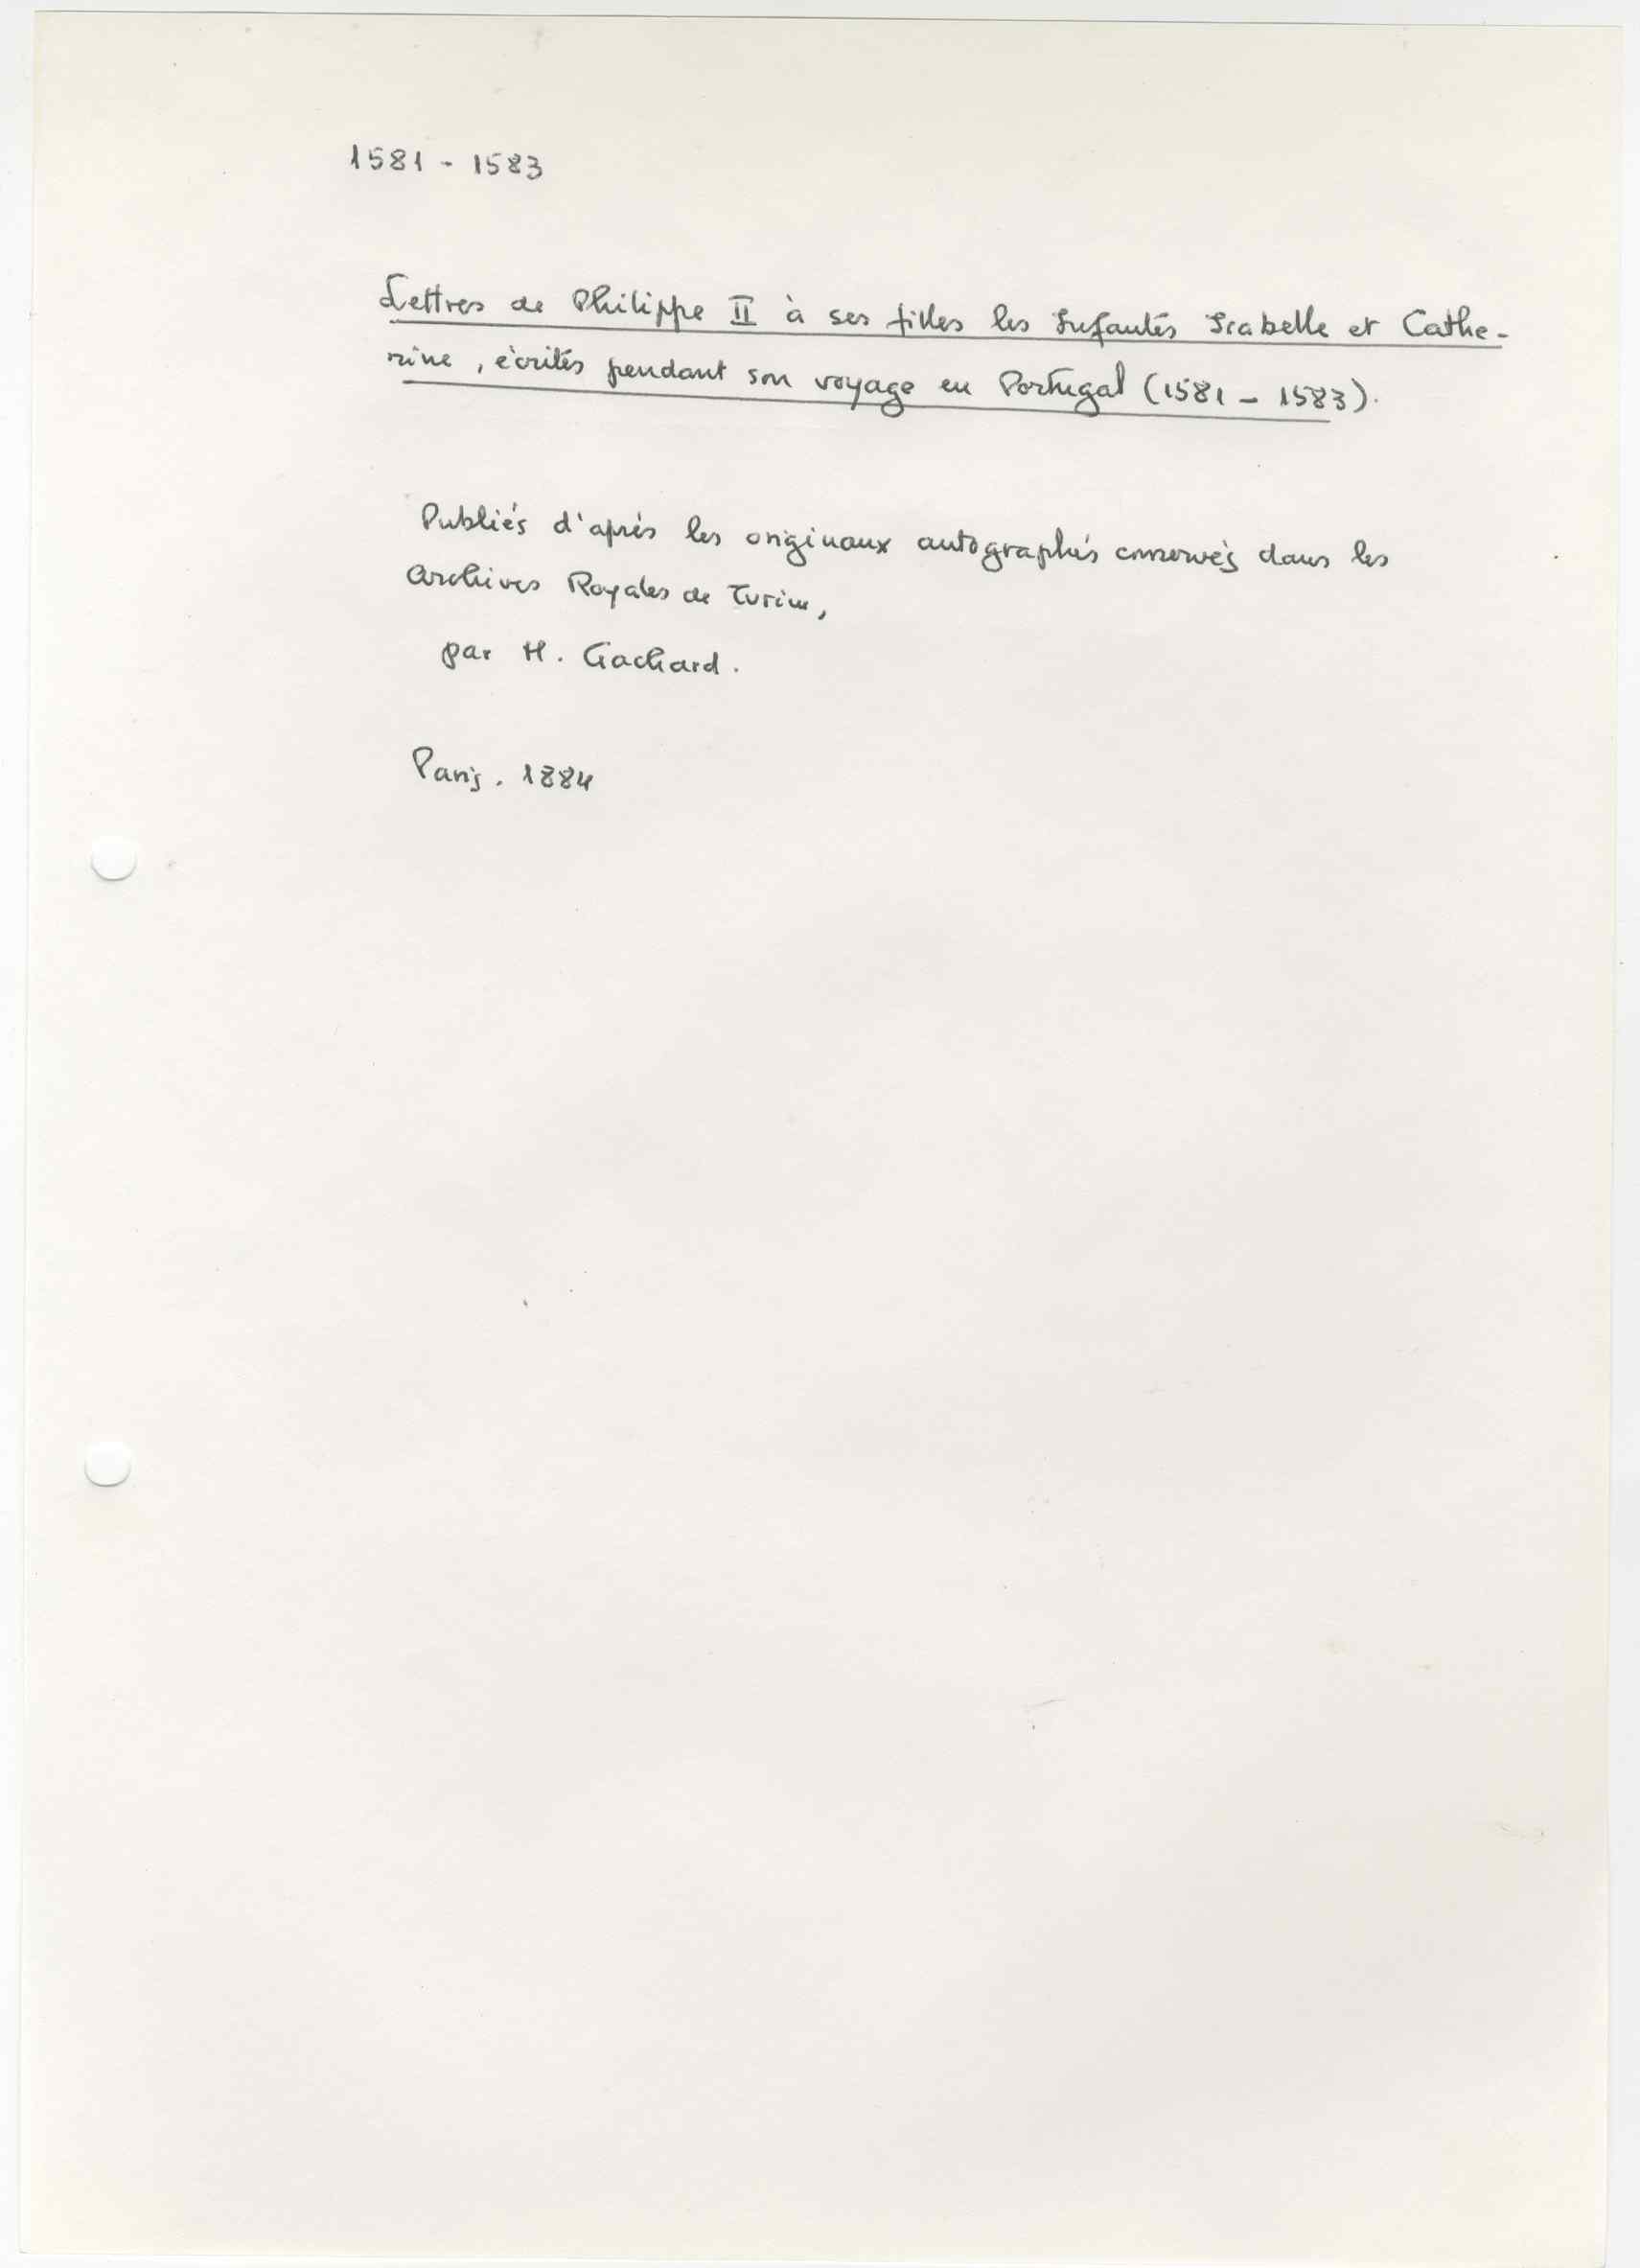 1581 - 1583
Lettres de Philippe II à ses filles les Infantés Isabelle et Cathe-
rine, écrités pendant son voyage en Portugal (1581 - 1583).
Publiés d'aprés les originaux autographés conservés dans les
Archives Royales de Turin,
par M. Gachard.
Paris. 1884